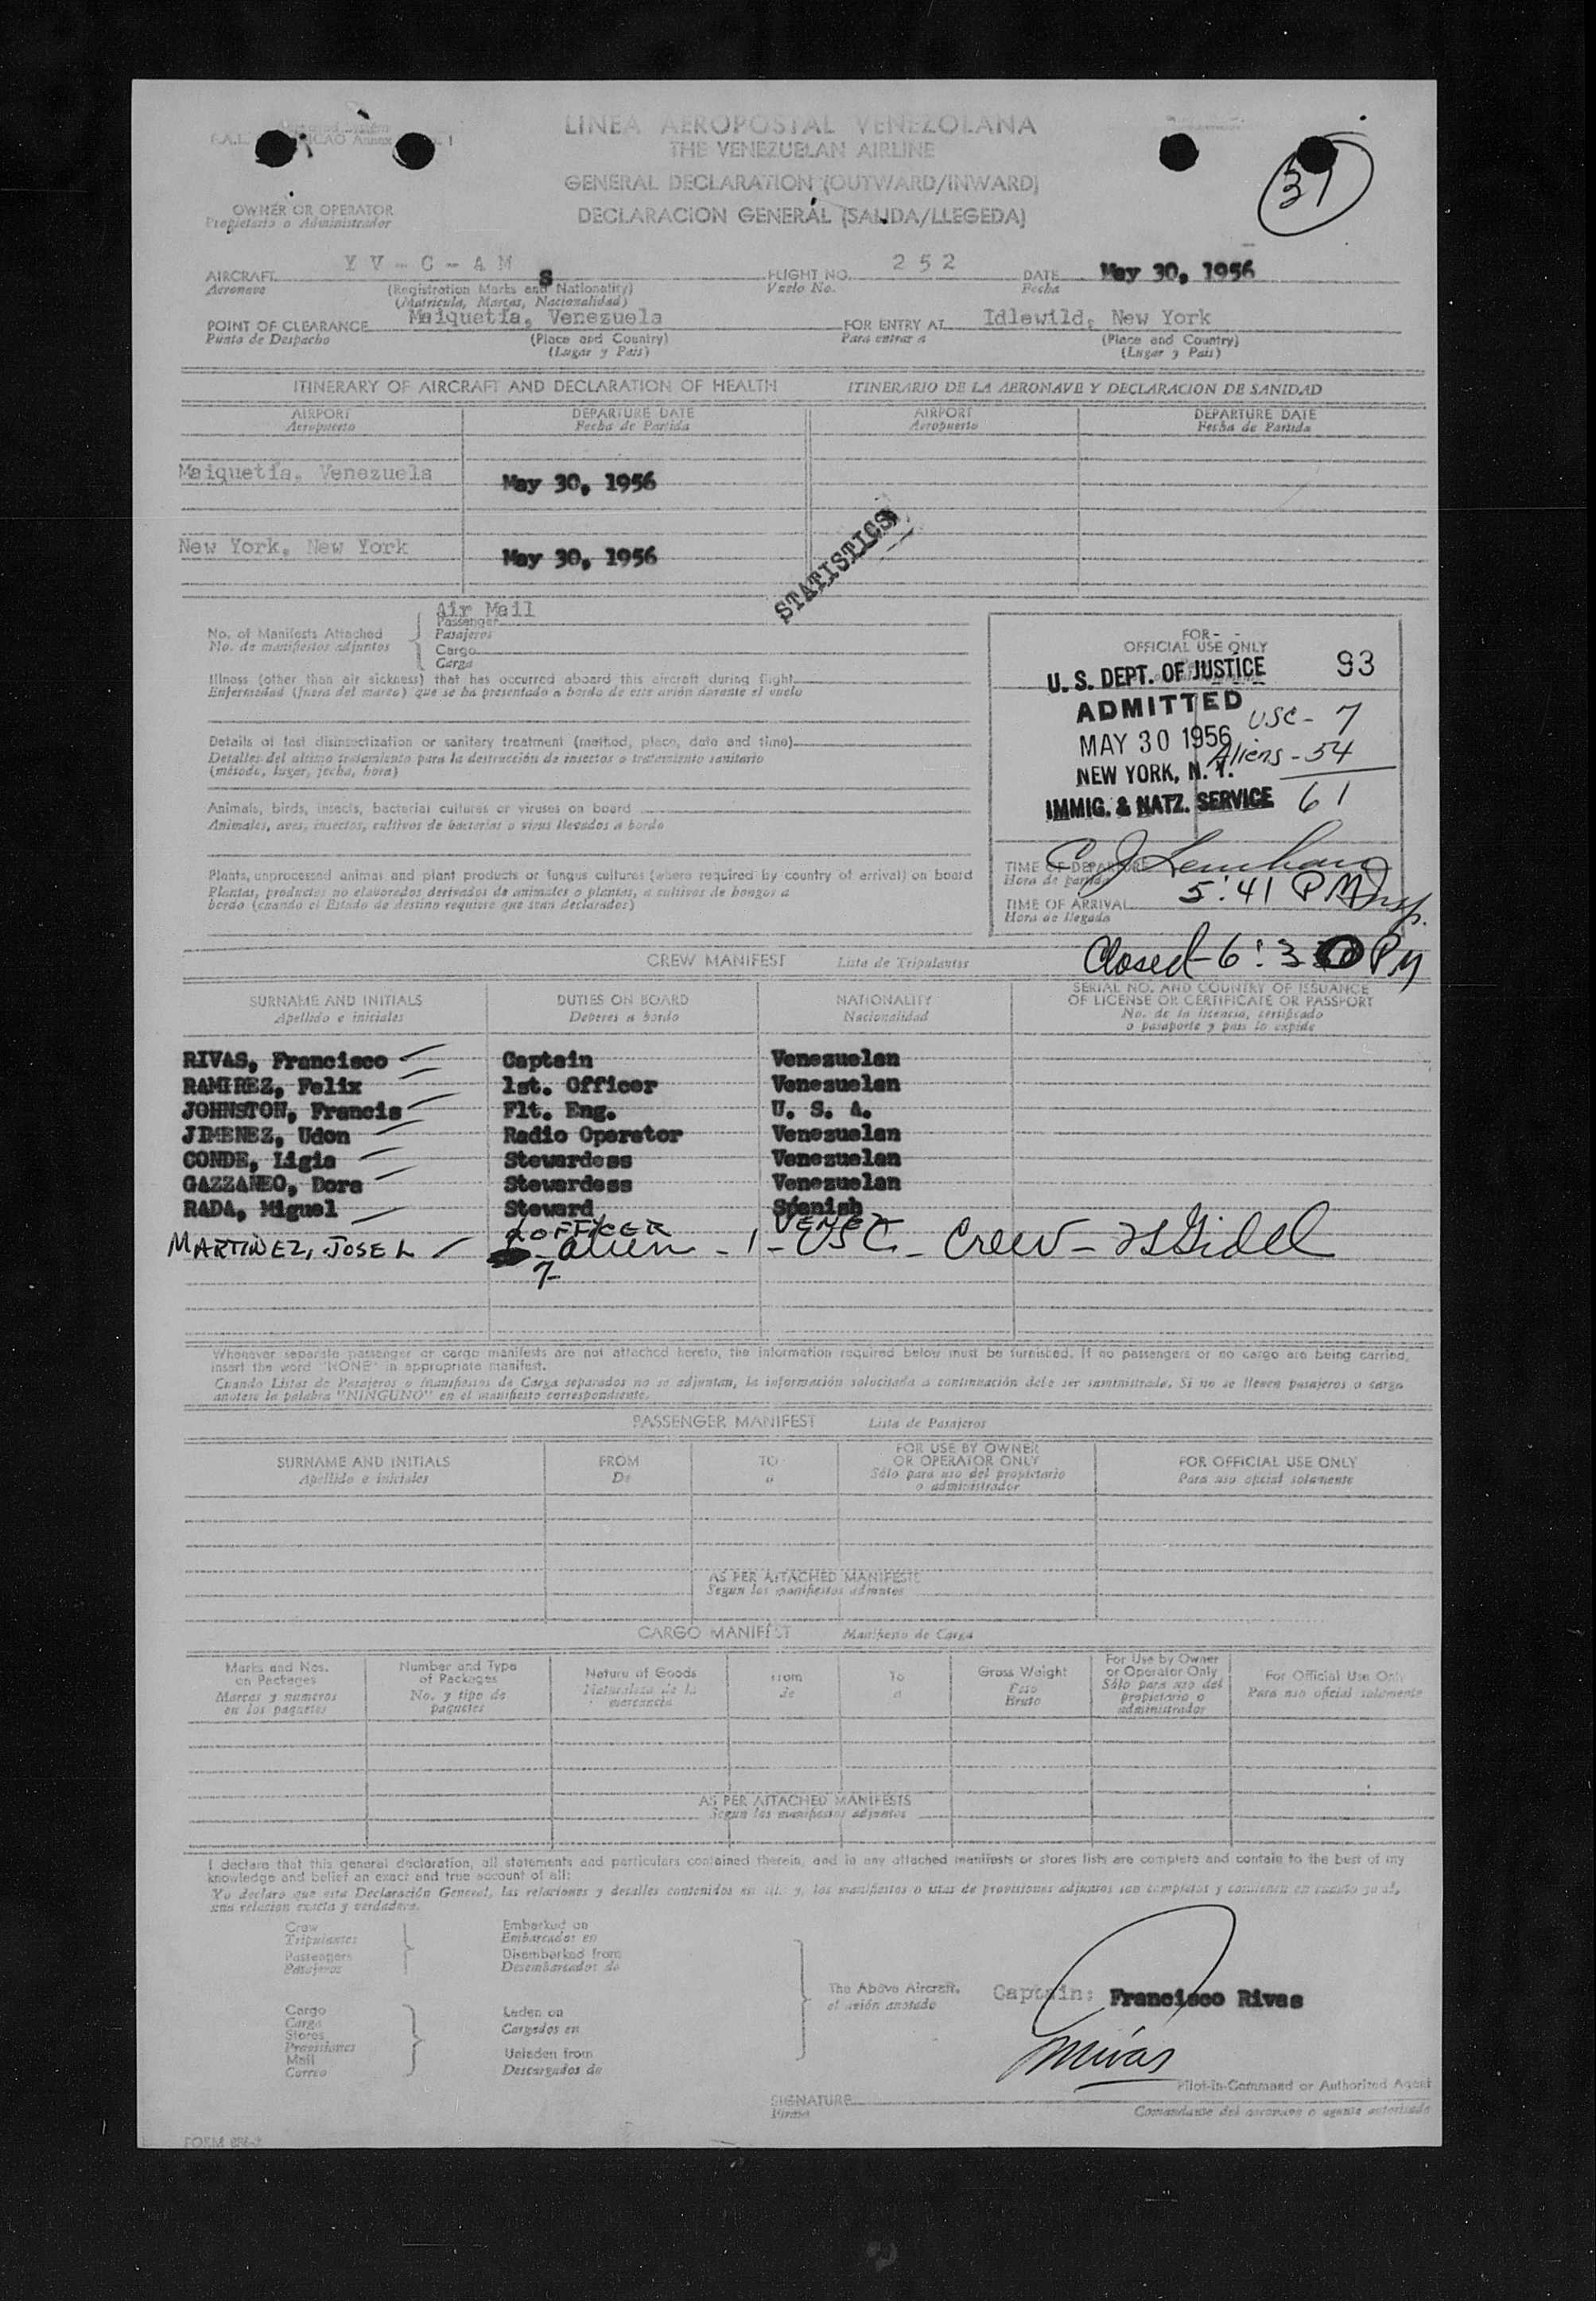 LINEA AEROPOSTAL VENEZOLANA
THE VENEZUELAN AIRLINE
GENERAL DECLARATION (OUTWARD/INWARD)
DECLARACION GENERAL (SALIDA/LLEGEDA)
31
OWNER OR OPERATOR
Propietario o Administrador
AIRCRAFT YV-C-AMS FLIGHT NO. 252 DATE May 30, 1956
Aeronave (Registration Marks and Nationality) Vuelo No. Fecha
(Matricula, Marcas, Nacionalidad)
POINT OF CLEARANCE Maiquetia, Venezuela FOR ENTRY AT Idlewild, New York
Punto de Despacho (Place and Country) Para entrar a (Place and Country)
(Lugar y Pais) (Lugar y Pais)
ITINERARY OF AIRCRAFT AND DECLARATION OF HEALTH ITINERARIO DE LA AERONAVE Y DECLARACION DE SANIDAD
AIRPORT DEPARTURE DATE AIRPORT DEPARTURE DATE
Aeropuerto Fecha de Partida Aeropuerto Fecha de Partida
Maiquetia, Venezuela May 30, 1956
New York, New York May 30, 1956
STATISTICS
Air Mail
Passenger
No. of Manifests Attached Pasajeros
No. de manifiestos adjuntos Cargo
Carga
Illness (other than air sickness) that has occurred aboard this aircraft during flight
Enfermedad (fuera del mareo) que se ha presentado a bordo de este avión durante el vuelo
Details of last disinsectization or sanitary treatment (method, place, date and time)
Detalles del ultimo tratamiento para la destrucción de insectos o tratamiento sanitario
(método, lugar, fecha, hora)
Animals, birds, insects, bacterial cultures or viruses on board
Animales, aves, insectos, cultivos de bacterias o virus llevados a bordo
Plants, unprocessed animal and plant products or fungus cultures (where required by country of arrival) on board
Plantas, productos no elaborados derivados de animales o plantas, o cultivos de hongos a
bordo (cuando el Estado de destino requiere que sean declarados)
FOR
OFFICIAL USE ONLY
U. S. DEPT. OF JUSTICE 93
ADMITTED
USC - 7
MAY 30 1956
Aliens - 54
NEW YORK, N. Y.
IMMIG. & NATZ. SERVICE 61
TIME OF DEPARTURE
Hora de partida
TIME OF ARRIVAL 5:41 PM Insp.
Hora de llegada
Closed 6:30 PM
CREW MANIFEST Lista de Tripulantes
SURNAME AND INITIALS DUTIES ON BOARD NATIONALITY SERIAL NO. AND COUNTRY OF ISSUANCE
OF LICENSE OR CERTIFICATE OR PASSPORT
Apellido e iniciales Deberes a bordo Nacionalidad No. de la licencia, certificado
o pasaporte y pais lo expide
RIVAS, Francisco Captain Venezuelan
RAMIREZ, Felix 1st. Officer Venezuelan
JOHNSTON, Francis Flt. Eng. U. S. A.
JIMENEZ, Udon Radio Operator Venezuelan
CONDE, Ligia Stewardess Venezuelan
GAZZANEO, Dora Stewardess Venezuelan
RADA, Miguel Steward Spanish
MARTINEZ, JOSE L OFFICER VENEZ
7 - alien - 1 - USC - Crew -
Whenever separate passenger or cargo manifests are not attached hereto, the information required below must be furnished. If no passengers or no cargo are being carried,
insert the word "NONE" in appropriate manifest.
Cuando Listas de Pasajeros o Manifiestos de Carga separados no se adjuntan, la información solocitada a continuación debe ser suministrada. Si no se lleven pasajeros o carga
anótese la palabra "NINGUNO" en el manifiesto correspondiente.
PASSENGER MANIFEST Lista de Pasajeros
SURNAME AND INITIALS FROM TO FOR USE BY OWNER
OR OPERATOR ONLY FOR OFFICIAL USE ONLY
Apellido e iniciales De a Sólo para uso del propietario
o administrador Para uso oficial solamente
AS PER ATTACHED MANIFESTS
Segun los manifiestos adjuntos
CARGO MANIFEST Manifiesto de Carga
Marks and Nos.
on Packages
Marcas y numeros
en los paquetes
Number and Type
of Packages
No. y tipo de
paquetes
Nature of Goods
Naturaleza de la
mercancia
From
de
To
a
Gross Weight
Peso
Bruto
For Use by Owner
or Operator Only
Sólo para uso del
propietario o
administrador
For Official Use Only
Para uso oficial solamente
AS PER ATTACHED MANIFESTS
Segun los manifiestos adjuntos
I declare that this general declaration, all statements and particulars contained therein, and in any attached manifests or stores lists are complete and contain to the best of my
knowledge and belief an exact and true account of all:
Yo declaro que esta Declaración General, las relaciones y detalles contenidos en
una relacion exacta y verdadera.
Crew Embarked on
Tripulantes Embarcados en
Passengers Disembarked from
Pasajeros Desembarcados de
The Above Aircraft.
el avión anotado
Captain: Francisco Rivas
Cargo Laden on
Carga Cargados en
Stores
Provisiones
Mail Unladen from
Correo Descargados de
Pilot-in-Command or Authorized Agent
SIGNATURE
Firma Comandante del aeronave o agente autorizado